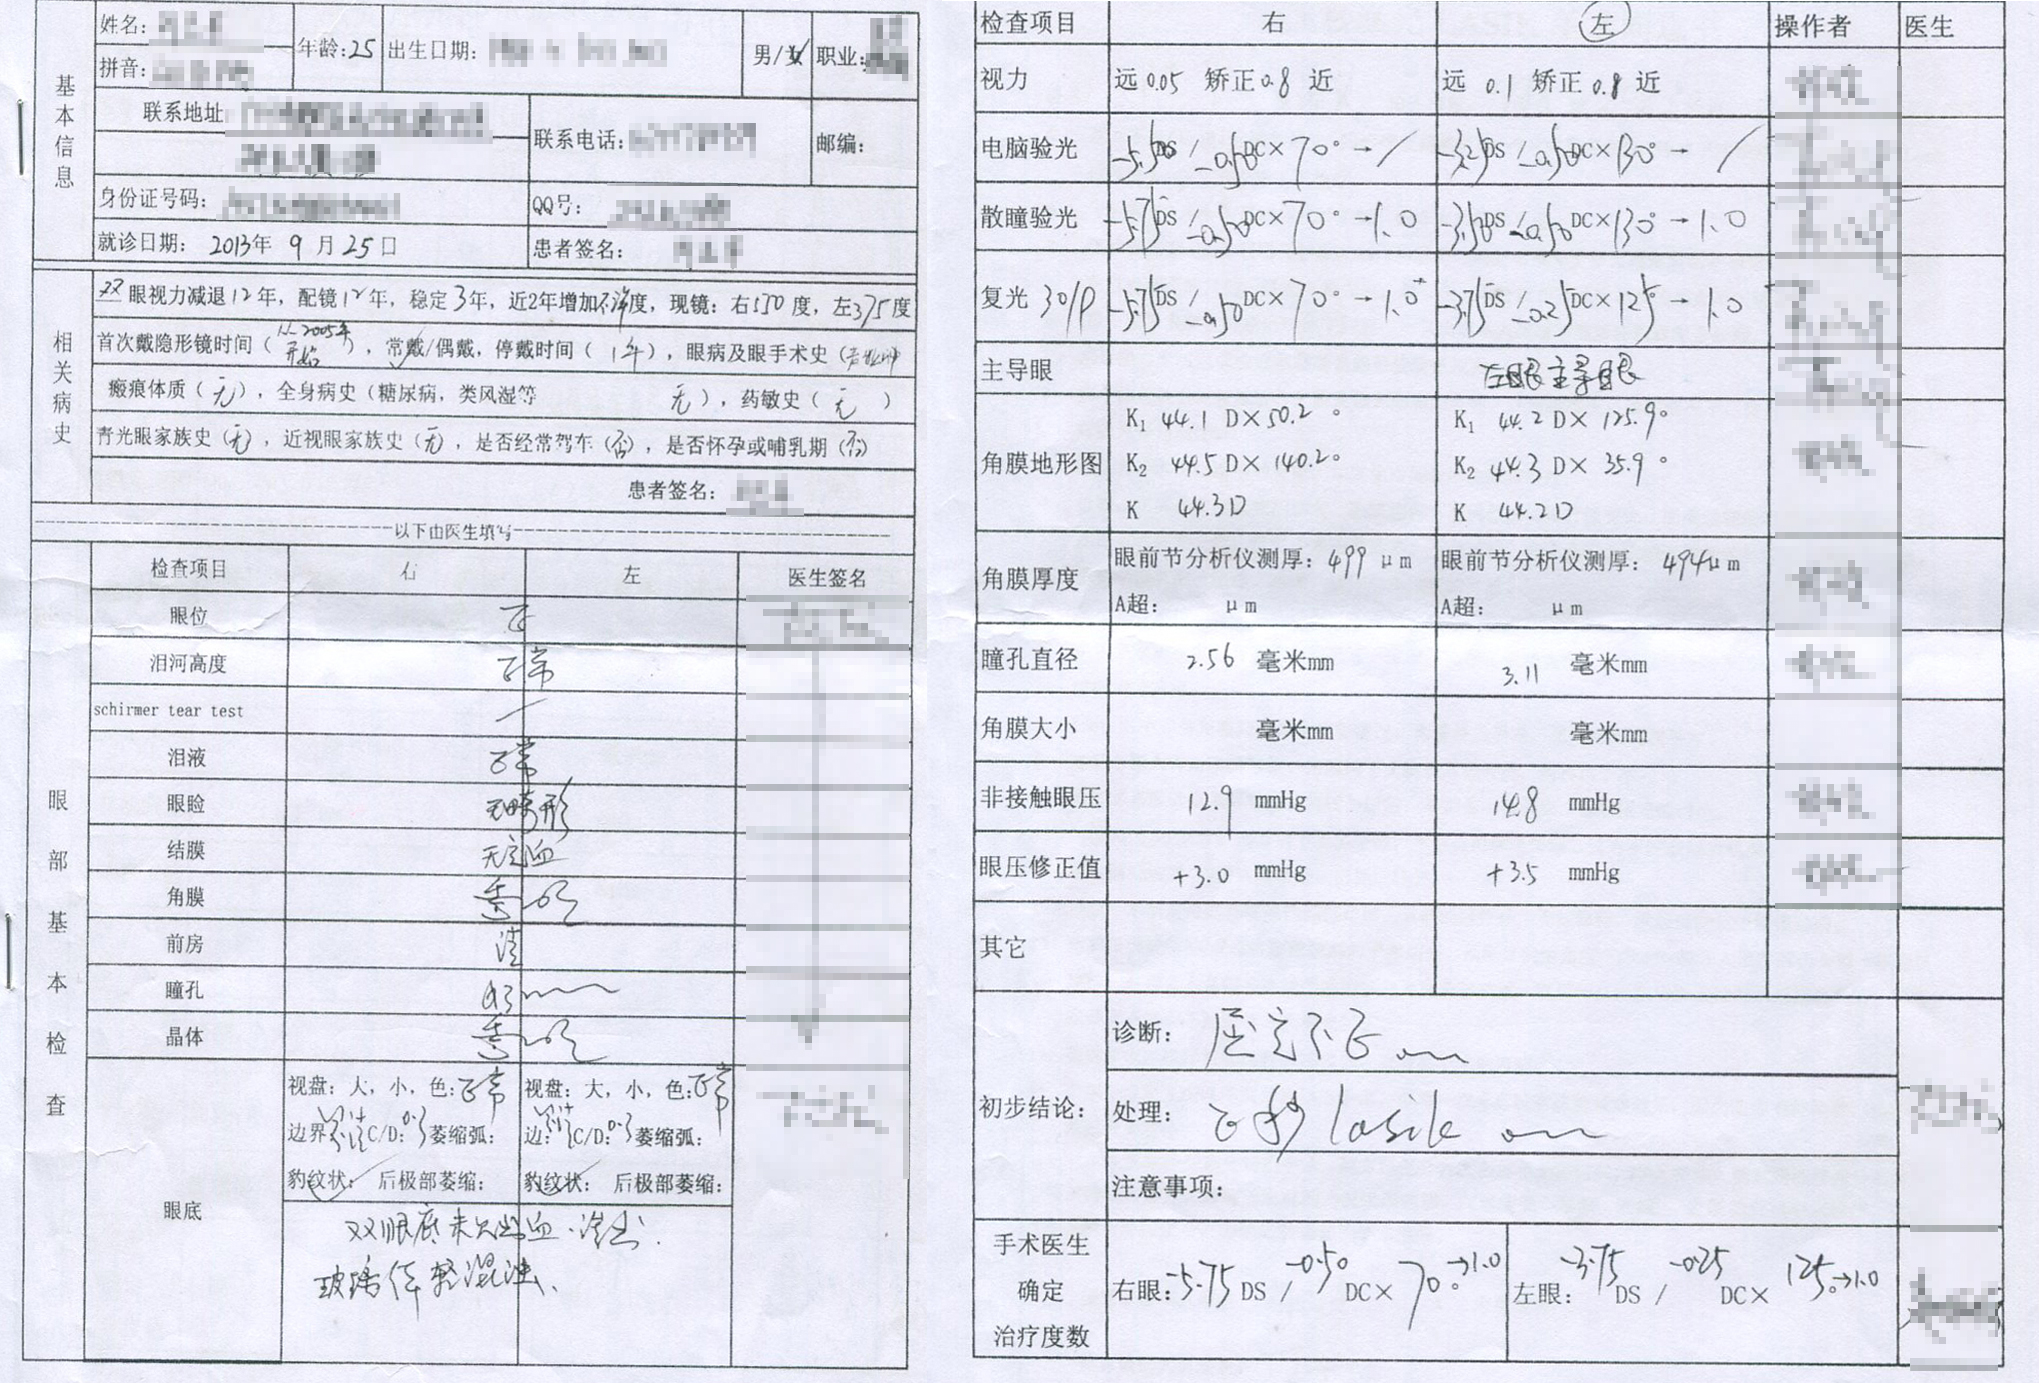 姓名:
拼音:
年龄:25
出生日期:
男/女
职业:
基本信息
联系地址
联系电话:
邮编:
身份证号码:
QQ号:
就诊日期: 2013年 9 月 25 日
患者签名:
相关病史
双眼视力减退12年, 配镜12年, 稳定3年, 近2年增加不详度, 现镜: 右550度, 左375度
首次戴隐形镜时间( 2005年开始 ), 常戴/偶戴, 停戴时间( 1年 ), 眼病及眼手术史(
瘢痕体质( 无 ), 全身病史(糖尿病, 类风湿等 无 ), 药敏史( 无 )
青光眼家族史(无), 近视眼家族史(无), 是否经常驾车(否), 是否怀孕或哺乳期(否)
患者签名:
以下由医生填写
眼部基本检查
检查项目 右 左 医生签名
眼位 正
泪河高度 正常
schirmer tear test
泪液 正常
眼睑 无畸形
结膜 无充血
角膜 透明
前房 清
瞳孔
晶体 透明
眼底
视盘: 大, 小, 色:正常 视盘: 大, 小, 色:正常
边界清C/D:0.3萎缩弧: 边:清C/D:0.3萎缩弧:
豹纹状: 后极部萎缩: 豹纹状: 后极部萎缩:
双眼底未见出血、渗出.
玻璃体轻混浊.
检查项目 右 左 操作者 医生
视力 远0.05 矫正0.8 近 远 0.1 矫正0.8 近
电脑验光 -5.50DS / -0.50DC×70° → / -3.25DS / -0.50DC×130° → /
散瞳验光 -5.75DS / -0.50DC×70° → 1.0 -3.50DS / -0.50DC×130° → 1.0
复光 30/9 -5.75DS / -0.50DC×70° → 1.0⁺ -3.75DS / -0.25DC×125° → 1.0
主导眼 左眼主导眼
角膜地形图
K₁ 44.1 D×50.2° K₁ 44.2 D× 125.9°
K₂ 44.5 D× 140.2° K₂ 44.3 D× 35.9°
K 44.3D K 44.2D
角膜厚度
眼前节分析仪测厚: 499 μm 眼前节分析仪测厚: 494μm
A超: μm A超: μm
瞳孔直径 2.56 毫米mm 3.11 毫米mm
角膜大小 毫米mm 毫米mm
非接触眼压 12.9 mmHg 14.8 mmHg
眼压修正值 +3.0 mmHg +3.5 mmHg
其它
初步结论:
诊断: 屈光不正 ou
处理: lasik ou
注意事项:
手术医生确定治疗度数
右眼:-5.75 DS / -0.50 DC× 70° →1.0 左眼: -3.75 DS / -0.25 DC× 125° →1.0